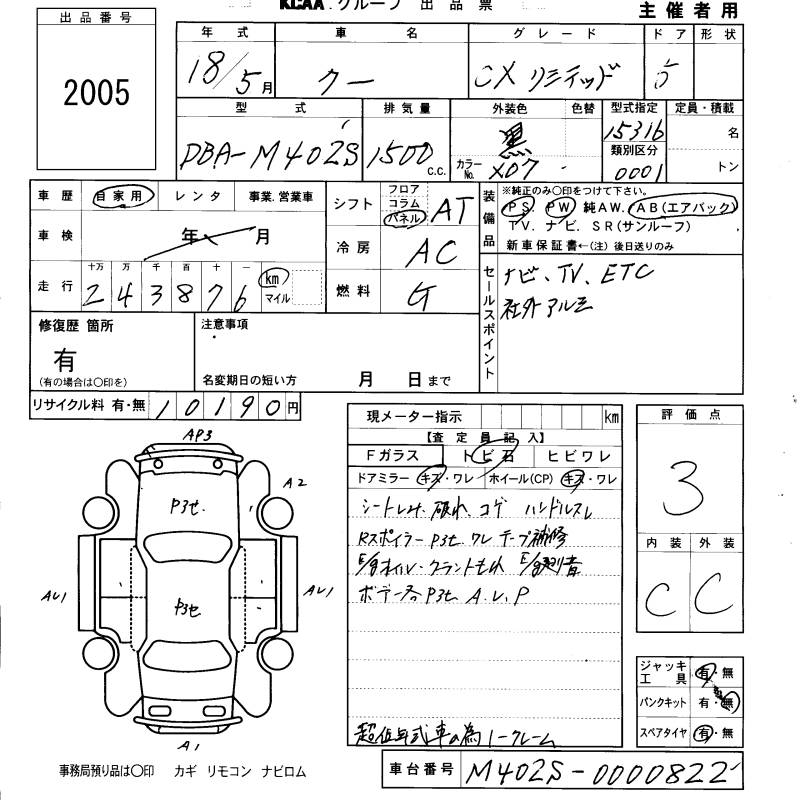 KCAA グループ 出品票
主催者用
出品番号
2005
年式 車名 グレード ドア 形状
18/5月 クー CXリミテッド 5
型式 排気量 外装色 色替 型式指定 定員・積載
DBA-M402S 1500 c.c. 黒 カラーNo. X07 15316 類別区分 0001 名 トン
車歴 自家用 レンタ 事業.営業車
車検 年 月
走行 十万 万 千 百 十 一
2 4 3 8 7 6 km マイル
シフト フロア コラム パネル AT
冷房 AC
燃料 G
装備品
※純正のみ○印をつけて下さい。
PS. PW 純AW. AB(エアバック)
TV. ナビ. SR(サンルーフ)
新車保証書←(注) 後日送りのみ
セールスポイント
ナビ、TV、ETC
社外アルミ
修復歴 箇所
有
(有の場合は○印を)
注意事項
名変期日の短い方 月 日まで
リサイクル料 有・無 10190円
現メーター指示 km
【査定員記入】
Fガラス トビ石 ヒビワレ
ドアミラー キズ・ワレ ホイール(CP) キズ・ワレ
破れ、コゲ ハンドルスレ
Rスポイラー P3セ ワレ テープ補修
ボデー P3セ A.U.P
評価点
3
内装 外装
C C
AP3
A2
P3セ.
P3セ
AU1
AU1
A1
ジャッキ工具 有・無
パンクキット 有・無
スペアタイヤ 有・無
超低年式車の為ノークレーム
事務局預り品は○印 カギ リモコン ナビロム
車台番号 M402S-0000822